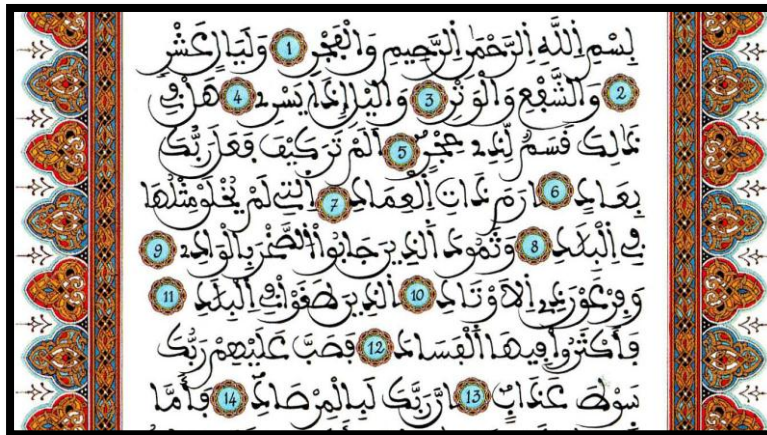 بِسْمِ اِللَّهِ اِلرَّحْمَٰنِ اِلرَّحِيمِ وَالْفَجْرِ 1 وَلَيَالٍ عَشْرٍ
2 وَالشَّفْعِ وَالْوَتْرِ 3 وَاليْلِ إِذَا يَسْرِۦ 4 هَلْ فِي
ذَٰلِكَ قَسَمٌ لِّذِي حِجْرٍ 5 أَلَمْ تَرَ كَيْفَ فَعَلَ رَبُّكَ
بِعَادٍ 6 اِرَمَ ذَاتِ اِلْعِمَادِ 7 اِلتِي لَمْ يُخْلَقْ مِثْلُهَا
فِي اِلْبِلَٰدِ 8 وَثَمُودَ اَلذِينَ جَابُوا اُلصَّخْرَ بِالْوَادِۦ 9
وَفِرْعَوْنَ ذِي اِلَاوْتَادِ 10 اِلذِينَ طَغَوْا فِي اِلْبِلَٰدِ 11
فَأَكْثَرُوا فِيهَا اَلْفَسَادَ 12 فَصَبَّ عَلَيْهِمْ رَبُّكَ
سَوْطَ عَذَابٍ 13 اِنَّ رَبَّكَ لَبِالْمِرْصَادِ 14 فَأَمَّا